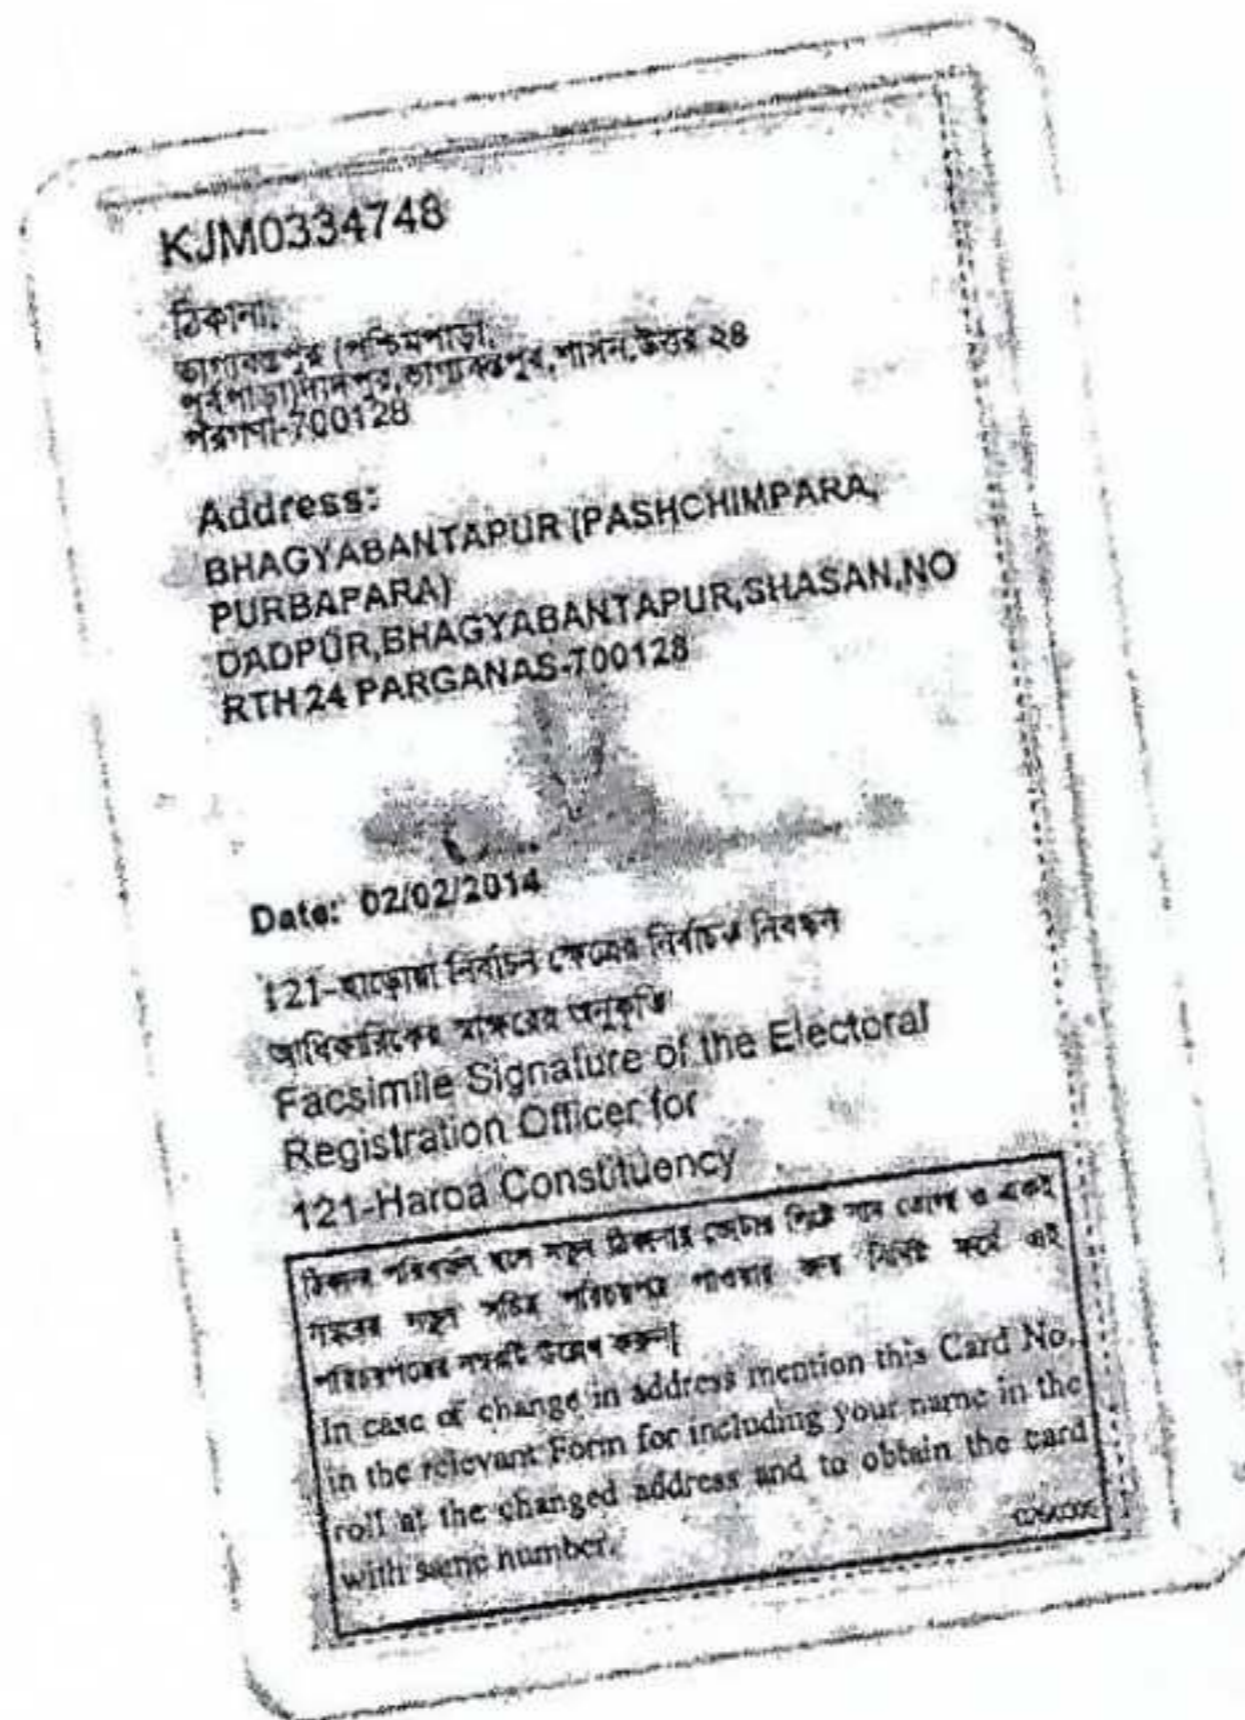 KJM0334748
ঠিকানা:
ভাগ্যবন্তপুর (পশ্চিমপাড়া,
পূর্বপাড়া)দাদপুর,ভাগ্যবন্তপুর,শাসন,উত্তর ২৪
পরগণা-700128
Address:
BHAGYABANTAPUR (PASHCHIMPARA,
PURBAPARA)
DADPUR,BHAGYABANTAPUR,SHASAN,NO
RTH 24 PARGANAS-700128
Date: 02/02/2014
121-হাড়োয়া নির্বাচন ক্ষেত্রের নির্বাচক নিবন্ধন
আধিকারিকের স্বাক্ষরের অনুকৃতি
Facsimile Signature of the Electoral
Registration Officer for
121-Haroa Constituency
ঠিকানা পরিবর্তন হলে নতুন ঠিকানায় ভোটার লিষ্টে নাম তোলা ও একই
নম্বরের নতুন সচিত্র পরিচয়পত্র পাওয়ার জন্য নির্দিষ্ট ফর্মে এই
পরিচয়পত্রের নম্বরটি উল্লেখ করুন।
In case of change in address mention this Card No.
in the relevant Form for including your name in the
roll at the changed address and to obtain the card
with same number.